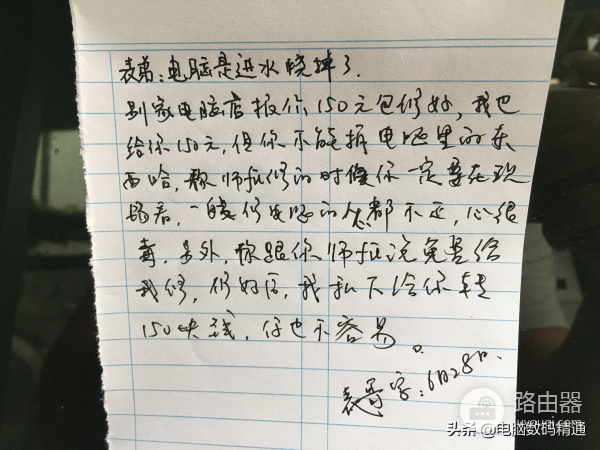 表弟：电脑是进水烧掉了.
别家电脑店报价150元包修好，我也
给你150元，但你不能拆电脑里的东
西哈，称师傅修的时候你一定要在现
场看，一般修电脑的人都不正，心很
毒，另外，你跟你师傅说免费给
我修，修好后，我私下给你转
150块钱，你也不容易。
表哥字：6月28日.
路由器
头条@电脑数码精通